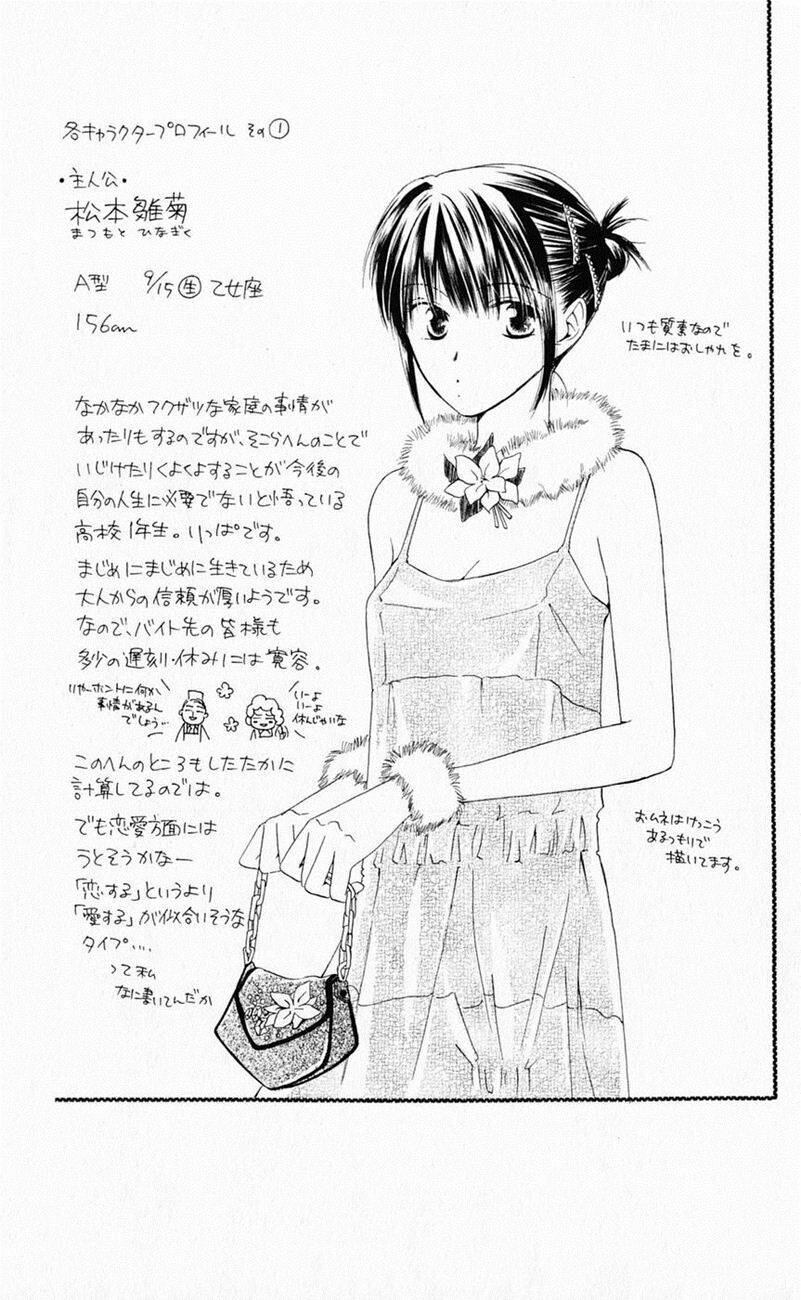 各キャラクタープロフィール その①
・主人公・
松本雛菊
まつもと ひなぎく
A型 9/15㊛ 乙女座
156cm
いつも質素なので
たまにはおしゃれを。
なかなかフクザツな家庭の事情が
あったりもするのですが、そこらへんのことで
いじけたりくよくよすることが今後の
自分の人生に必要でないと悟っている
高校1年生。りっぱです。
まじめにまじめに生きているため
大人からの信頼が厚いようです。
なので、バイト先の皆様も
多少の遅刻・休みには寛容。
いやーホントに何か
事情があるん
でしょう…
いーよ
いーよ
休んじゃいな
このへんのところもしたたかに
計算してるのでは。
でも恋愛方面には
うとそうかなー
「恋する」というより
「愛する」が似合いそうな
タイプ…
って私
なに書いてんだか
おムネはけっこう
あるつもりで
描いてます。